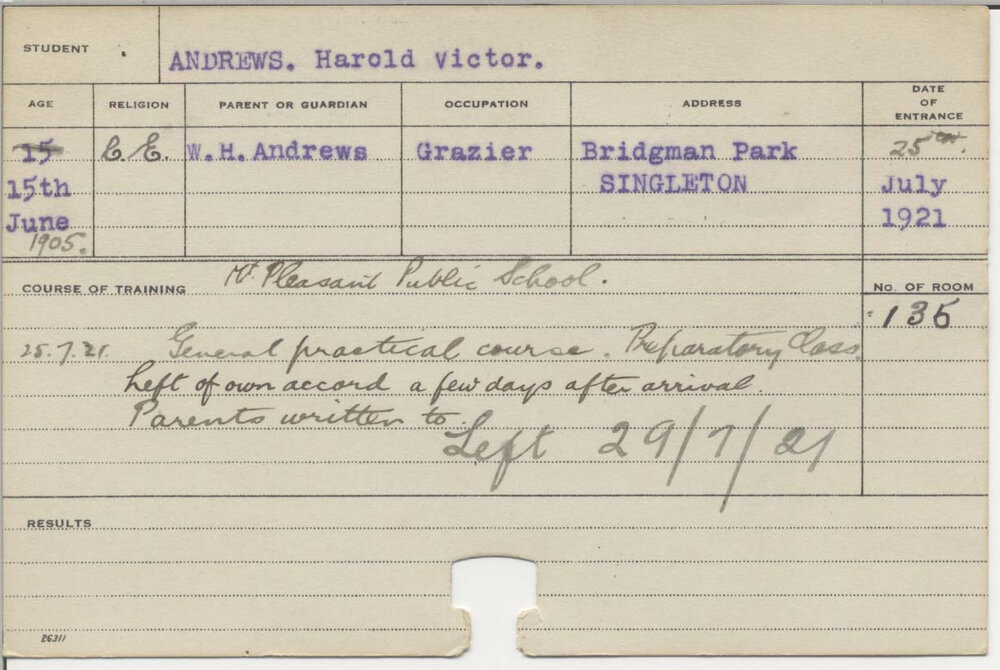 STUDENT
ANDREWS. Harold Victor.
AGE
RELIGION
PARENT OR GUARDIAN
OCCUPATION
ADDRESS
DATE OF ENTRANCE
15
C.E.
W.H.Andrews
Grazier
Bridgman Park
25th.
15th
SINGLETON
July
June
1921
1905.
COURSE OF TRAINING
Mt. Pleasant Public School.
No. OF ROOM
135
25.7.21. General practical course. Preparatory Class.
Left of own accord a few days after arrival.
Parents written to.
Left 29/7/21
RESULTS
26311